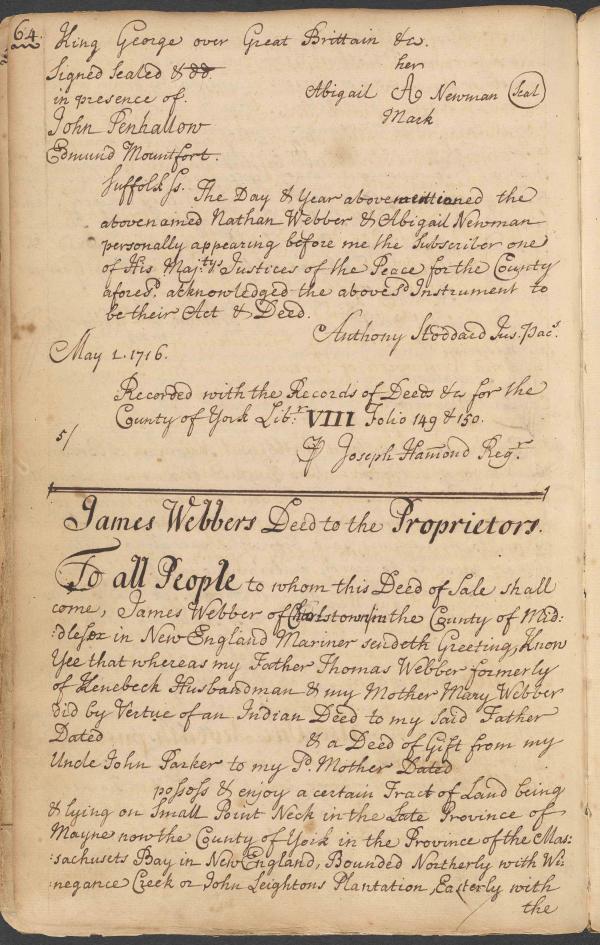 64.
King George over Great Brittain &c.
Signed Sealed & dd.
in presence of.
John Penhallow
Edmund Mountfort.
her
Abigail A Newman Seal
Mark
Suffolk ss. The Day & Year abovementioned the
abovenamed Nathan Webber & Abigail Newman
personally appearing before me the Subscriber one
of His Maj:tys Justices of the Peace for the County
afores.d acknowledged the aboves.d Instrument to
be their Act & Deed.
Anthony Stoddard Jus: Pac.s
May 1. 1716.
Recorded with the Records of Deeds &c for the
County of York Lib.r VIII Folio 149 & 150.
5/
Joseph Hamond Reg.r
James Webbers Deed to the Proprietors.
To all People to whom this Deed of Sale shall
come, James Webber of Charlstown in the County of Mid:
:dlesex in New England Mariner sendeth Greeting, Know
Yee that whereas my Father Thomas Webber formerly
of Kenebeck Husbandman & my Mother Mary Webber
did by Vertue of an Indian Deed to my said Father
Dated & a Deed of Gift from my
Uncle John Parker to my s.d Mother Dated
possess & enjoy a certain Tract of Land being
& lying on Small Point Neck in the Late Province of
Mayne now the County of York in the Province of the Mas:
:sachusets Bay in New England, Bounded Northerly with Wi:
:negance Creek or John Leightons Plantation, Easterly with
the